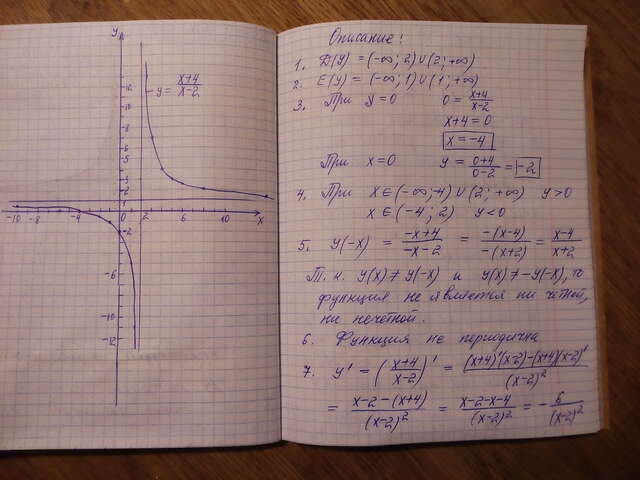 y
y = (x+4)/(x-2)
12
10
8
6
5
3
2
1
-10 -8 -6 -4 0 2 6 10 x
-2
-6
-10
-12
Описание!
1. D(y) = (-∞; 2) ∪ (2; +∞)
2. E(y) = (-∞; 1) ∪ (1; +∞)
3. При y=0 0 = (x+4)/(x-2)
x+4=0
x = -4
При x=0 y = (0+4)/(0-2) = -2
4. При x∈(-∞; -4) ∪ (2; +∞) y>0
x∈(-4; 2) y<0
5. y(-x) = (-x+4)/(-x-2) = (-(x-4))/(-(x+2)) = (x-4)/(x+2)
Т.к. y(x) ≠ y(-x) и y(x) ≠ -y(-x), то
функция не является ни чётной,
ни нечётной.
6. Функция не периодична
7. y' = ((x+4)/(x-2))' = ((x+4)'(x-2)-(x+4)(x-2)')/(x-2)²
= (x-2-(x+4))/(x-2)² = (x-2-x-4)/(x-2)² = -6/(x-2)²